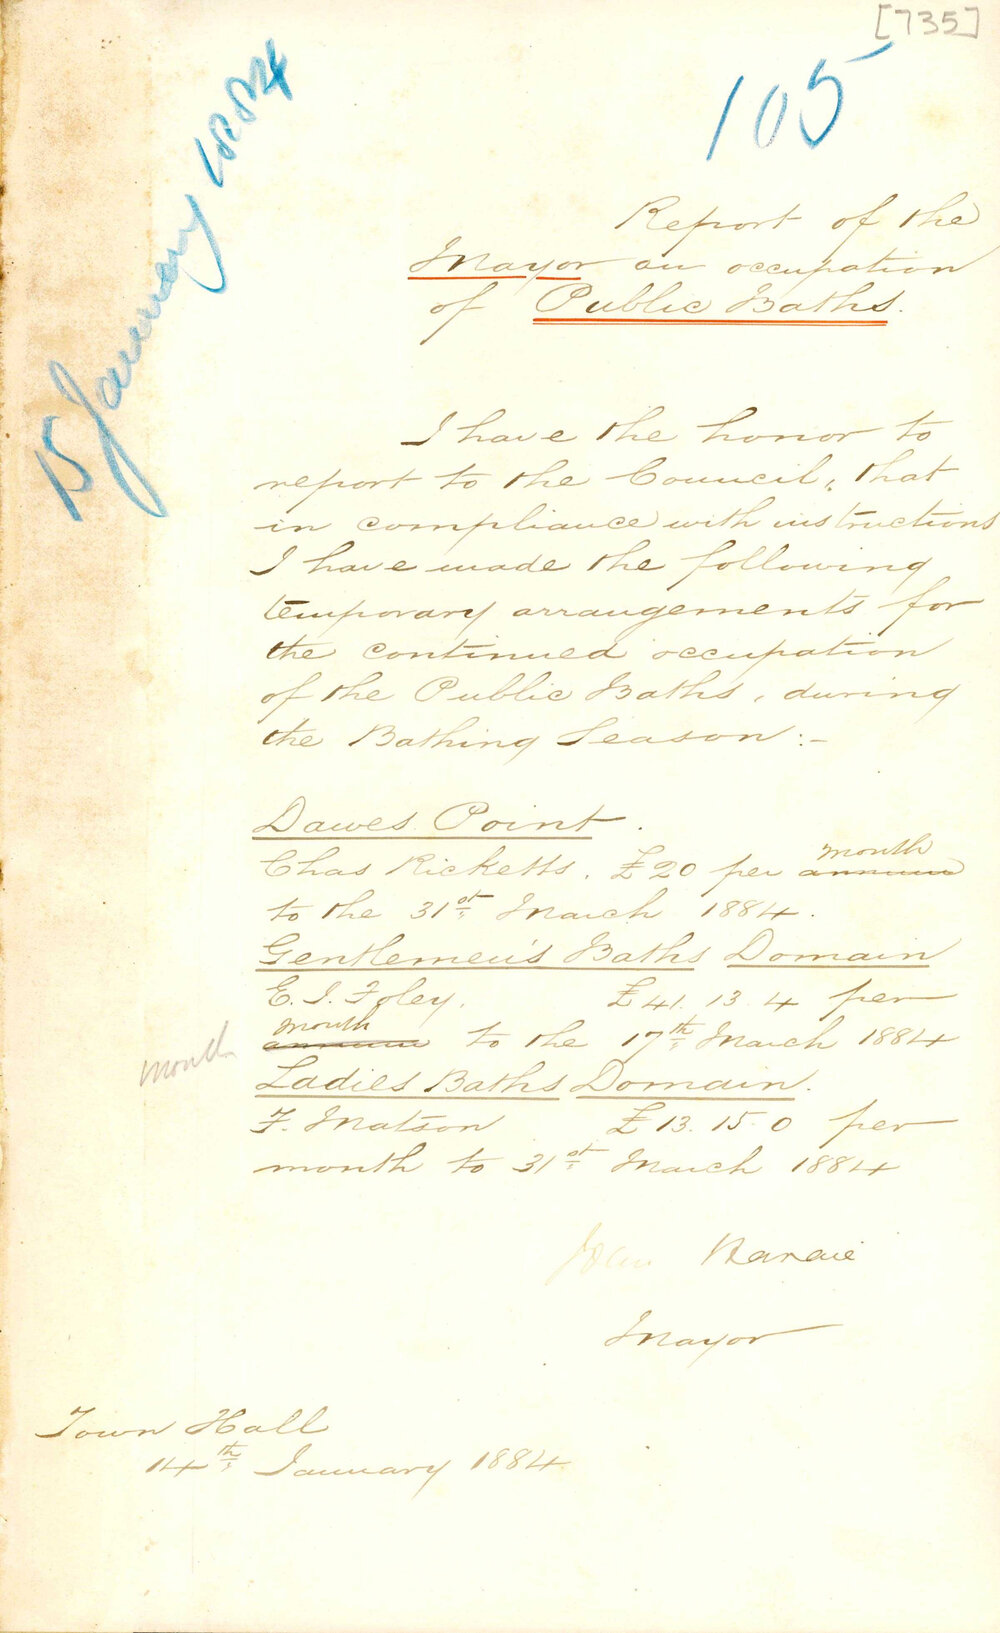 [735]
105
15 January 1884
Report of the
Mayor on occupation
of Public Baths.
I have the honor to
report to the Council, that
in compliance with instructions
I have made the following
temporary arrangements for
the continued occupation
of the Public Baths, during
the Bathing Season:-
Dawes Point.
month
Chas Ricketts. £20 per annum
to the 31st March 1884.
Gentlemen's Baths Domain
E. J. Foley. £41. 13. 4 per
month
month annum to the 17th March 1884
Ladies Baths Domain.
F. Matson £13. 15. 0 per
month to 31st March 1884
John Hardie
Mayor
Town Hall
14th January 1884.